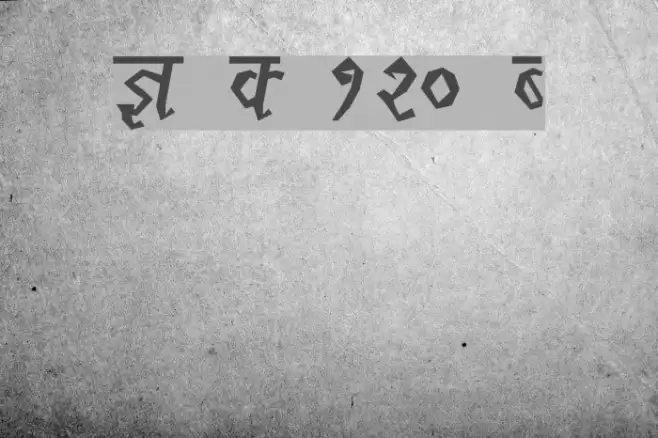 ज्ञ क १२० ठ